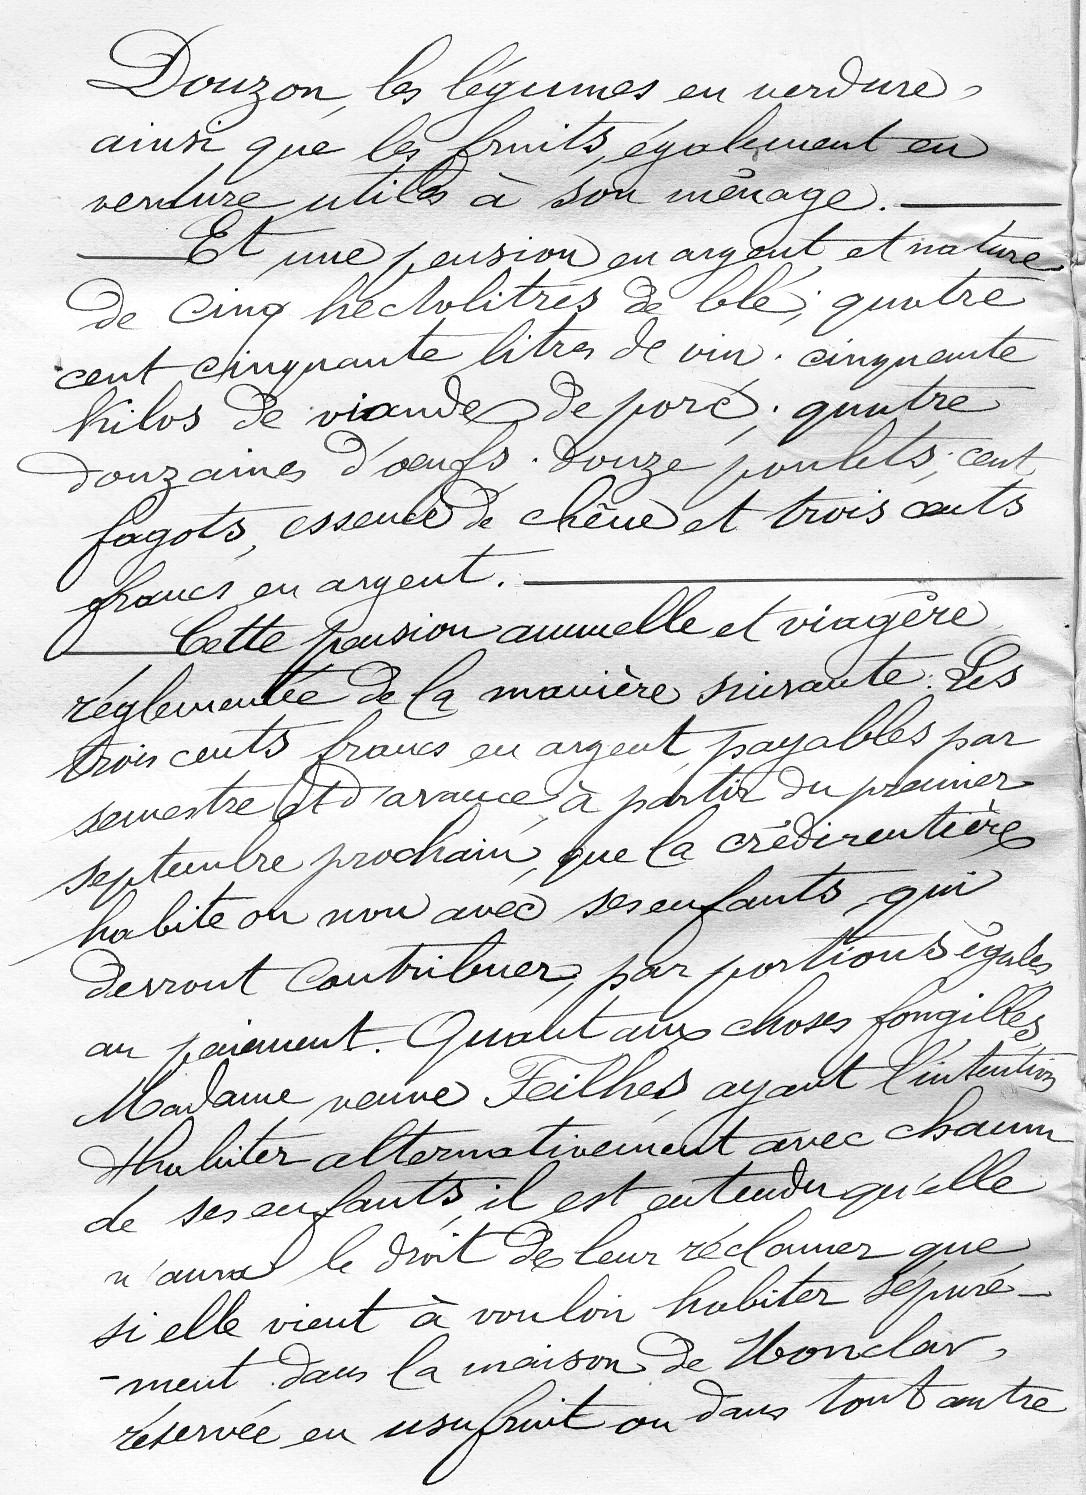 Douzon, les légumes en verdure,
ainsi que les fruits, également en
verdure utiles à son ménage.
Et une pension en argent et nature
de cinq hectolitres de blé; quatre
cent cinquante litres de vin. cinquante
kilos de viande de porc; quatre
douzaines d'œufs. douze poulets; cent
fagots, essence de chêne et trois cents
francs en argent.
Cette pension annuelle et viagère
réglementée de la manière suivante: Les
trois cents francs en argent, payables par
semestre et d'avance, à partir du premier
septembre prochain, que la crédirentière
habite ou non avec ses enfants, qui
devront contribuer, par portions égales,
au paiement. Quant aux choses fongibles,
Madame veuve Feilhes, ayant l'intention
d'habiter alternativement avec chacun
de ses enfants, il est entendu qu'elle
n'aura le droit de leur réclamer que
si elle vient à vouloir habiter séparé-
-ment dans la maison de Monclar,
réservée en usufruit ou dans tout autre